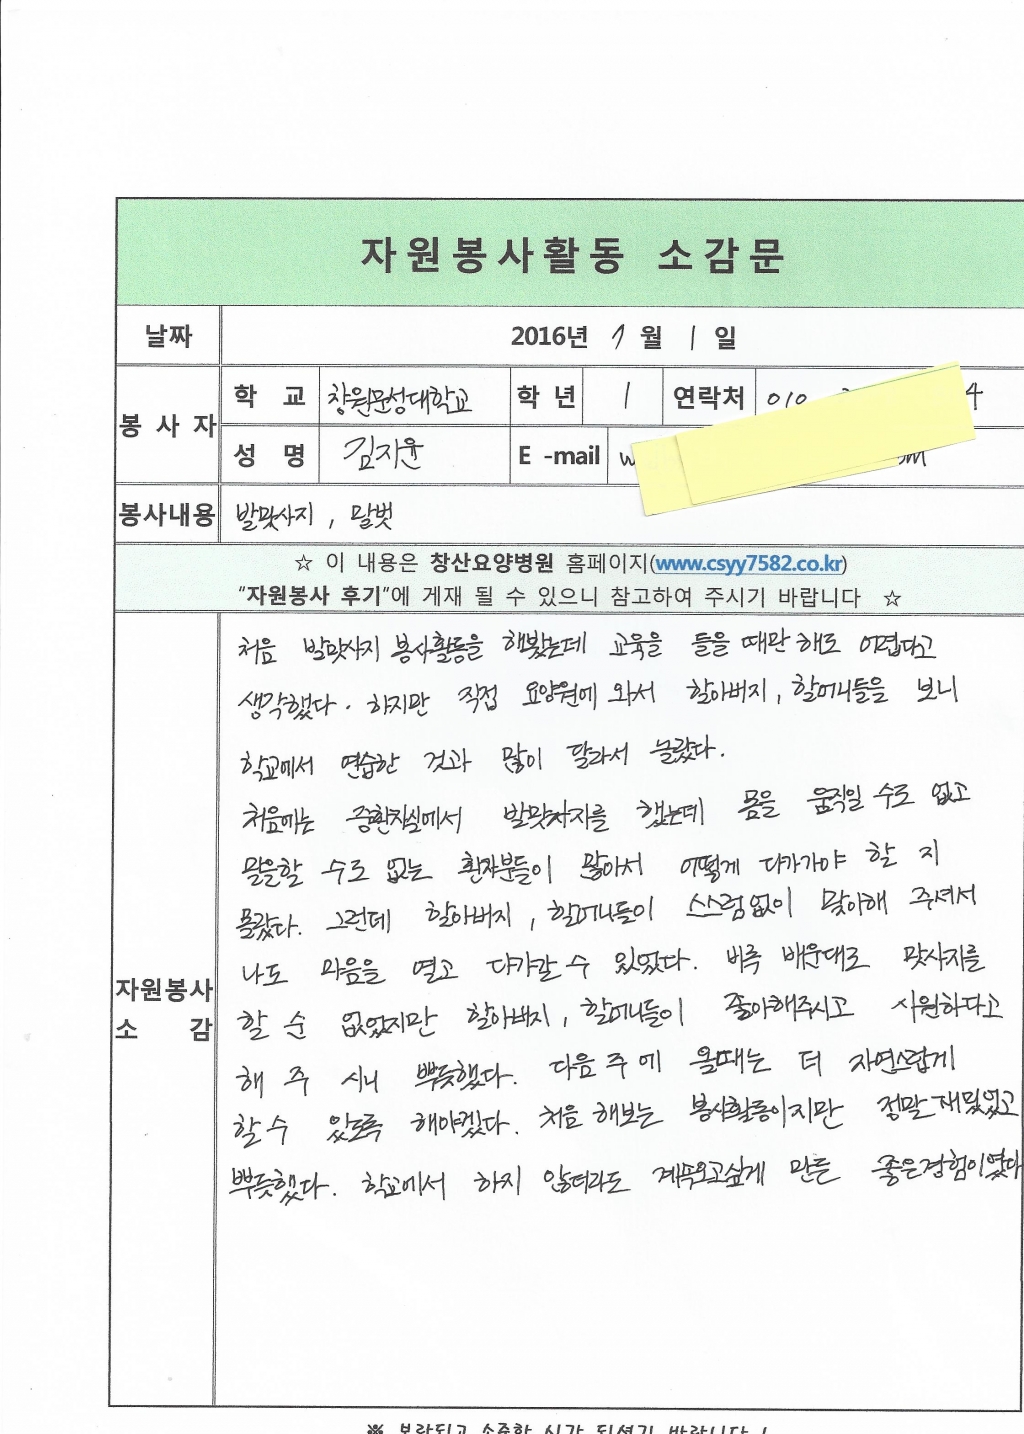 자원봉사활동 소감문
날짜 2016년 7월 1일
봉사자 학교 창원문성대학교 학년 1 연락처 010 4
성명 김지윤 E-mail w
봉사내용 발맛사지, 말벗
☆ 이 내용은 창산요양병원 홈페이지(www.csyy7582.co.kr)
"자원봉사 후기"에 게재 될 수 있으니 참고하여 주시기 바랍니다 ☆
자원봉사 소감
처음 발맛사지 봉사활동을 해봤는데 교육을 들을 때만 해도 어렵다고
생각했다. 하지만 직접 요양원에 와서 할아버지, 할머니들을 보니
학교에서 연습한 것과 많이 달라서 놀랐다.
처음에는 중환자실에서 발맛사지를 했는데 몸을 움직일 수도 없고
말을할 수도 없는 환자분들이 많아서 어떻게 다가가야 할 지
몰랐다. 그런데 할아버지, 할머니들이 스스럼없이 맞이해 주셔서
나도 마음을 열고 다가갈 수 있었다. 비록 배운대로 맛사지를
할 순 없었지만 할아버지, 할머니들이 좋아해주시고 시원하다고
해 주 시니 뿌듯했다. 다음 주에 올때는 더 자연스럽게
할 수 있도록 해야겠다. 처음 해보는 봉사활동이지만 정말 재밌었고
뿌듯했다. 학교에서 하지 않더라도 계속오고싶게 만든 좋은경험이였다
※ 보람되고 소중한 시간 되셨기 바랍니다 !